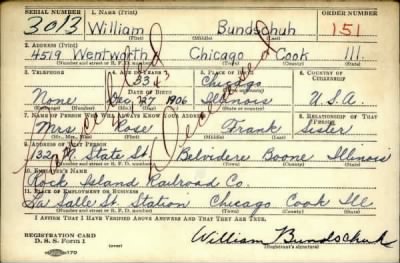 SERIAL NUMBER 1. NAME (Print) ORDER NUMBER
3013 William Bundschuh 151
(First) (Middle) (Last)
2. ADDRESS (Print)
4519 Wentworth Chicago Cook Ill
(Number and street or R. F. D. number) (Town) (County) (State)
3. TELEPHONE 4. AGE IN YEARS 5. PLACE OF BIRTH 6. COUNTRY OF CITIZENSHIP
33 Chicago
None Dec 27 1906 Illinois U.S.A.
7. NAME OF PERSON WHO WILL ALWAYS KNOW YOUR ADDRESS 8. RELATIONSHIP OF THAT PERSON
Mrs Rose Frank Sister
9. ADDRESS OF THAT PERSON
State St Belvidere Boone Illinois
(Number and street or R. F. D. number) (Town) (County) (State)
10. EMPLOYER'S NAME
Rock Island Railroad Co.
11. PLACE OF EMPLOYMENT OR BUSINESS
La Salle St. Station Chicago Cook Ill
(Number and street or R. F. D. number) (Town) (County) (State)
I AFFIRM THAT I HAVE VERIFIED ABOVE ANSWERS AND THAT THEY ARE TRUE.
REGISTRATION CARD
D. S. S. Form 1 William Bundschuh
(Registrant's signature)